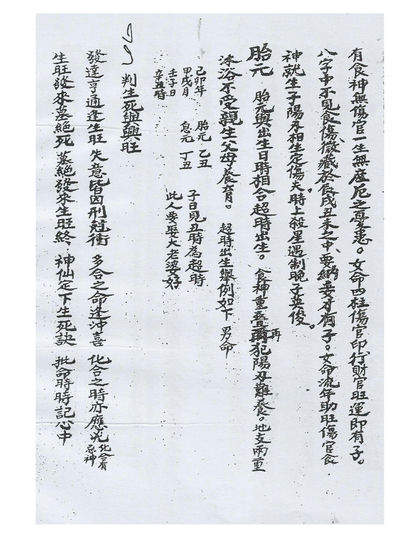 有食神無傷官一生無產厄之憂患。女命四柱傷官印行財官旺運即有子。
八字中不見食傷微藏於辰戌丑未之中、要納妾才有子。女命流年助旺傷官食
神就生子陽刃相生定傷夫時上殺星遇制晚子英俊。
胎元 胎元與出生日時相合超時出生。食神重疊再犯陽刃難養。地支兩重
沐浴不受親生父母養育。 超時出生舉例如下 男命
己卯年 胎元 乙丑
甲戌月 息元 丁丑
壬子日 子日見丑時為超時
辛丑時 此人要娶大老婆好
判生死與興旺
發達亨通逢生旺 失意皆因刑尅衝 多合之命逢沖喜 化合之時亦應凶 化合有忌神
生旺發來墓絕死 墓絕發來生旺終 神仙定下生死訣 批命時時記心中